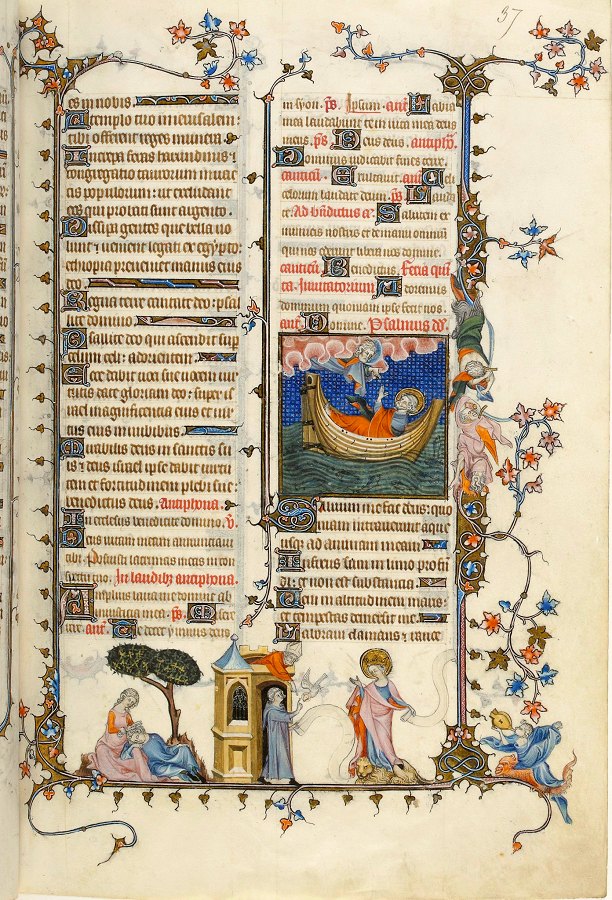 es in nobis
A templo tuo in ierusalem
tibi offerent reges munera
Increpa feras harundinis
congregatio taurorum in vac
cis populorum: ut excludant
eos qui probati sunt argento.
Dissipa gentes que bella vo
lunt venient legati ex egypto:
ethiopia preveniet manus eius
deo.
Regna terre cantate deo: psal
lite domino
Psallite deo qui ascendit sup
celum celi: ad orientem
Ecce dabit voci sue vocem vir
tutis date gloriam deo: super is
rael magnificentia eius et vir
tus eius in nubibus
Mirabilis deus in sanctis su
is: deus israel ipse dabit virtu
tem et fortitudinem plebi sue
benedictus deus. Antiphona.
In ecclesiis benedicite domino. V.
Deus vitam meam annunciavi
tibi. Posuisti lacrimas meas in con
spectu tuo. In laudibus antiphona.
Amplius lava me domine ab
iniusticia mea. ps. Mise
rere. ant. Te decet ymnus deus
37
in syon. ps. Ipsum. ant. Labia
mea laudabunt te in vita mea deus
meus. ps. Deus deus. antipho.
Dominus iudicabit fines terre.
canticum. Exultavit. ant. Celi
celorum laudate deum. ps. Laudate
Ad benedictus a. Salutem ex
inimicis nostris et de manu omnium
qui nos oderunt libera nos domine.
canticum Benedictus. Feria quin
ta. Invitatorium Adoremus
dominum quoniam ipse fecit nos.
ant. Domine. Psalmus dd.
Salvum me fac deus: quo
niam intraverunt aque
usque ad animam meam
Infixus sum in limo profun
di: et non est substantia
Veni in altitudinem maris:
et tempestas demersit me
Laboravi clamans et rauce